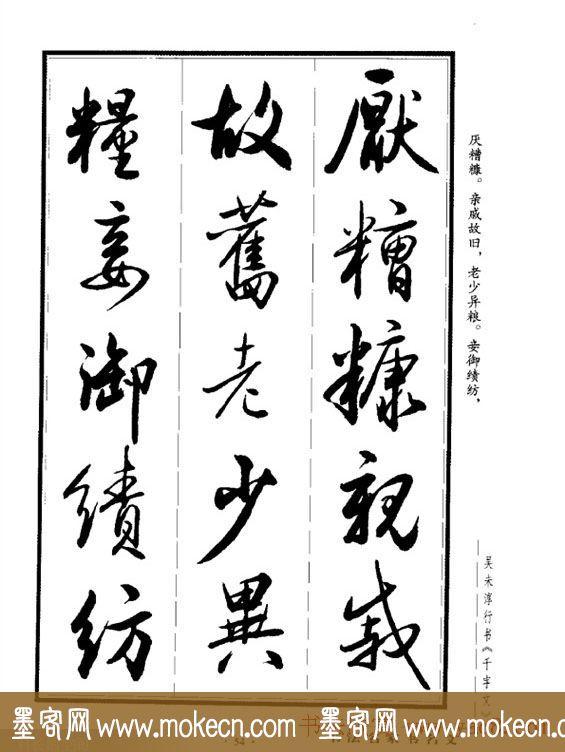 厭糟糠親戚
故舊老少異
糧妾御績紡
厌糟糠。亲戚故旧，老少异粮。妾御绩纺，
吴未淳行书《千字文
墨客网 www.mokecn.com 墨客网 www.mokecn.com